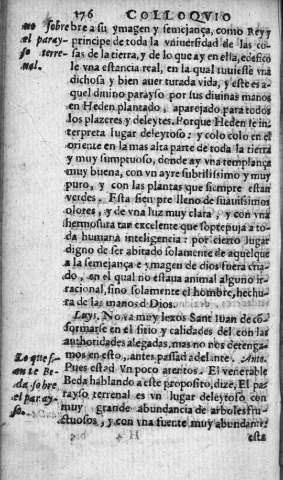 176 COLLOQVIO
no sobre
el paray-
so terre-
nal.
bre a su ymagen y semejança, como Rey y
principe de toda la vniuersidad de las co-
sas de la tierra, y de lo que ay en ella, edefico
le vna estancia real, en la qual tuuiesse vna
dichosa y bien auenturada vida, y este es a-
quel diuino parayso por sus diuinas manos
en Heden plantado, aparejado para todos
los plazeres y deleytes. Porque Heden se in-
terpreta lugar deleytoso: y colocolo en el
oriente en la mas alta parte de toda la tierra
y muy sumptuoso, donde ay vna templança
muy buena, con vn ayre subtilissimo y muy
puro, y con las plantas que siempre estan
verdes. Esta siempre lleno de suauissimos
olores, y de vna luz muy clara, y con vna
hermosura tan excelente que sobrepuja a to-
da humana inteligencia: por cierto lugar
digno de ser abitado solamente de aquel que
a la semejança e ymagen de dios fuera cria-
do, en el qual no estaua animal alguno ir-
racional, sino solamente el hombre, hechu-
ra de las manos de Dios.
Luys. No va muy lexos Sant Iuan de cõ-
formarse en el sitio y calidades del con las
authoridades alegadas, mas no nos detenga-
mos en esto, antes passad adelante. Anto.
Pues estad vn poco atentos. El venerable
Beda hablando a este proposito, dize, El pa-
rayso terrenal es vn lugar deleytoso con
muy grande abundancia de arboles fru-
ctuosos, y con vna fuente muy abundante
Lo que si-
ente Be-
da sobre
el paray-
so.
esta